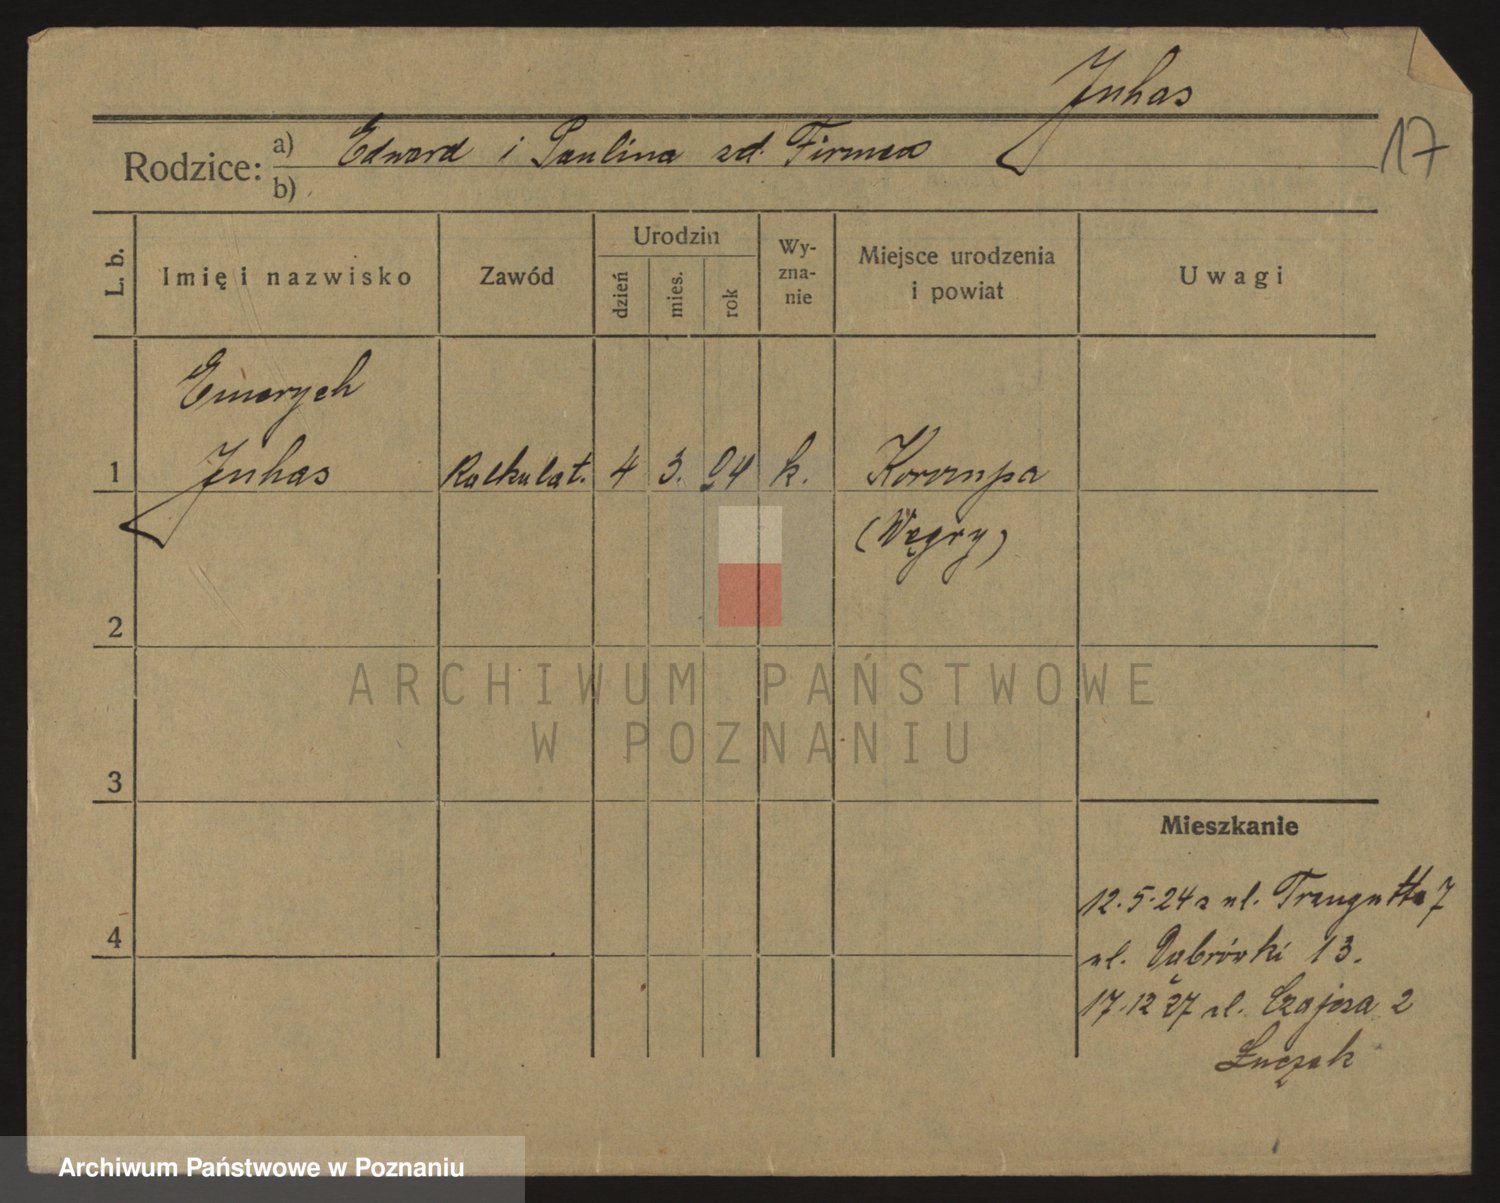 Juhas
17
Rodzice: a) Edward i Paulina zd. Firmens
b)
L. b.
Imię i nazwisko
Zawód
Urodzin
dzień
mies.
rok
Wy-
zna-
nie
Miejsce urodzenia
i powiat
Uwagi
Emerych
1 Juhas Kalkulat. 4 3. 04 k. Korompa
(Węgry)
2
3
4
Mieszkanie
12.5.24 z ul. Traugutta 7
ul. Dąbrówki 13.
17.12 27 ul. Czajcza 2
Łuczak
ARCHIWUM PAŃSTWOWE
W POZNANIU
Archiwum Państwowe w Poznaniu